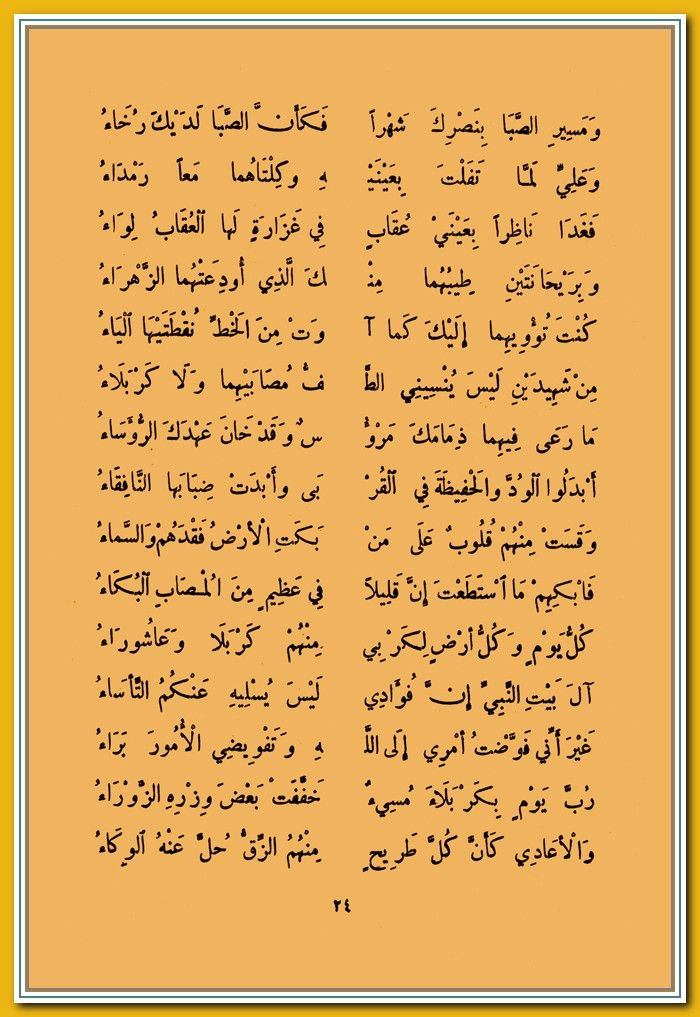 وَمَسِيرِ الصَّبَا بِنَصْرِكَ شَهْراً فَكَأَنَّ الصَّبَا لَدَيْكَ رُخَاءُ
وَعَلِيٍّ لَمَّا تَفَلْتَ بِعَيْنَيْ هِ وَكِلْتَاهُما مَعاً رَمْدَاءُ
فَغَدَا نَاظِراً بِعَيْنَيْ عُقَابٍ فِي غَزَارَةٍ لَها ٱلْعُقَابُ لِوَاءُ
وَبِرَيْحَانَتَيْنِ طِيبُهُما مِنْ كَ الَّذِي أُودِعَتْهُما الزَّهْرَاءُ
كُنْتَ تُؤْوِيهِما إِلَيْكَ كَما آ وَتْ مِنَ الْخَطِّ نُقْطَتَيْهَا ٱلْيَاءُ
مِنْ شَهِيدَيْنِ لَيْسَ يُنْسِينِي الطَّ فُّ مُصَابَيْهِما وَلَا كَرْبَلَاءُ
مَا رَعَى فِيهِما ذِمَامَكَ مَرْؤُ سٌ وَقَدْ خَانَ عَهْدَكَ الرُّؤَسَاءُ
أَبْدَلُوا ٱلْوُدَّ والْحَفِيظَةَ فِي ٱلْقُرْ بَى وأَبْدَتْ ضِبَابَها النَّافِقَاءُ
وَقَسَتْ مِنْهُمْ قُلُوبٌ عَلَى مَنْ بَكَتِ الْأَرْضُ فَقْدَهُمْ وَالسَّماءُ
فَابْكِهِمْ مَا ٱسْتَطَعْتَ إِنَّ قَلِيلاً فِي عَظِيمٍ مِنَ الْمُصَابِ ٱلْبُكَاءُ
كُلُّ يَوْمٍ وَكُلُّ أَرْضٍ لِكَرْبِي مِنْهُمْ كَرْبَلَا وَعَاشُورَاءُ
آلَ بَيْتِ النَّبِيِّ إِنَّ فُؤَادِي لَيْسَ يُسْلِيهِ عَنْكُمُ التَّأْسَاءُ
غَيْرَ أَنِّي فَوَّضْتُ أَمْرِي إِلَى اللَّ هِ وَتَفْوِيضِي الْأُمُورَ بَرَاءُ
رُبَّ يَوْمٍ بِكَرْبَلَاءَ مُسِيءٌ خَفَّفَتْ بَعْضَ وِزْرِهِ الزَّوْرَاءُ
وَالْأَعَادِي كَأَنَّ كُلَّ طَرِيحٍ مِنْهُمُ الزِّقُّ حُلَّ عَنْهُ ٱلوِكَاءُ
٢٤